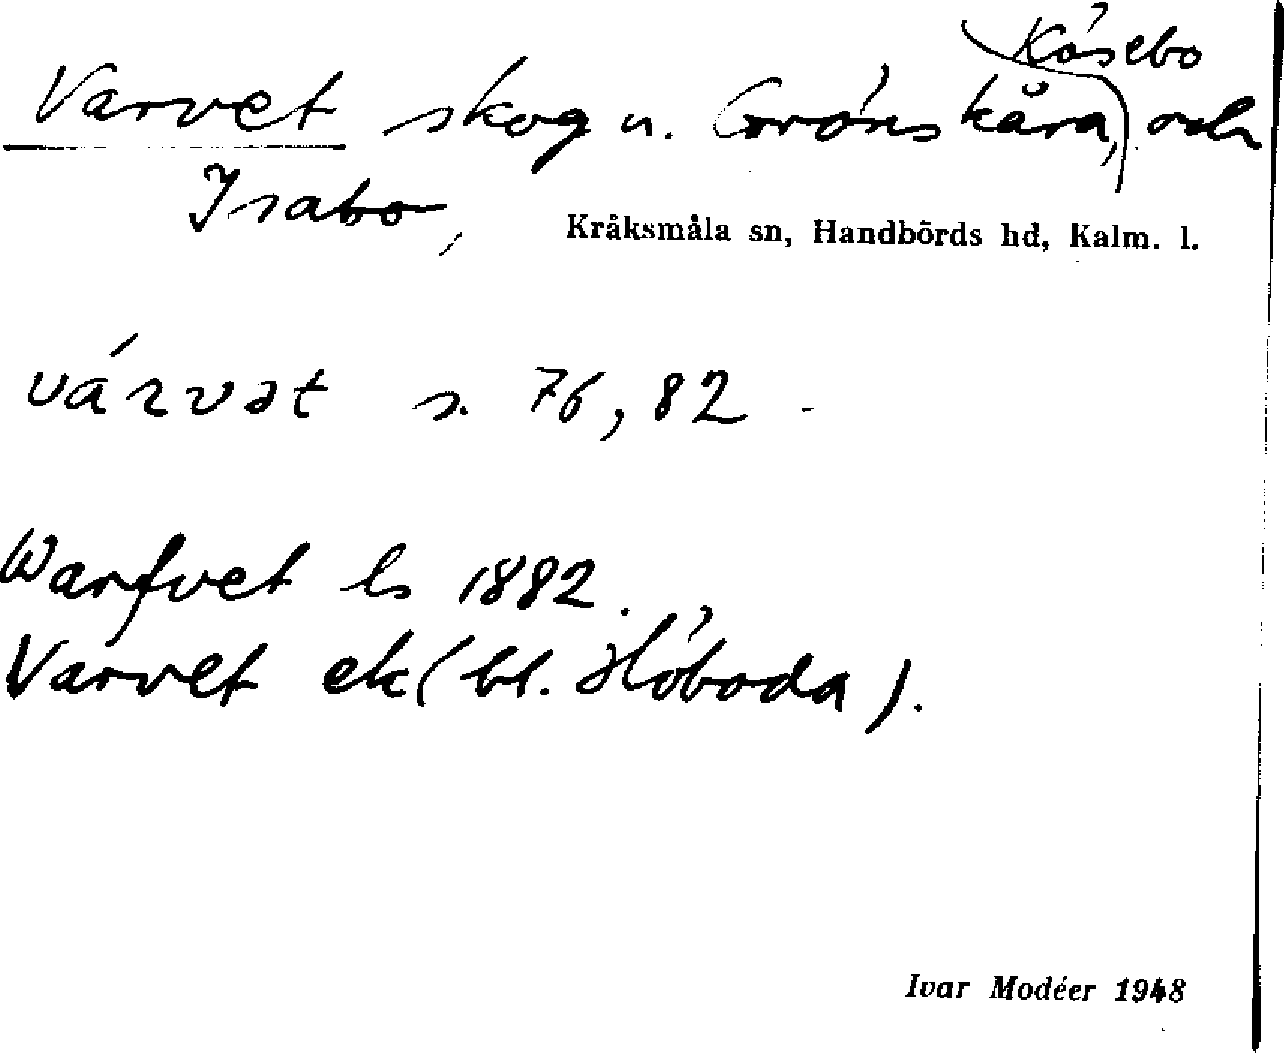 Varvet skog u. Grönskåra, Kösebo och
Isabo,
Kråksmåla sn, Handbörds hd, Kalm. l.
várvət s. 76, 82 -
Warfvet ls 1882.
Varvet ek (bl. Höboda).
Ivar Modéer 1948